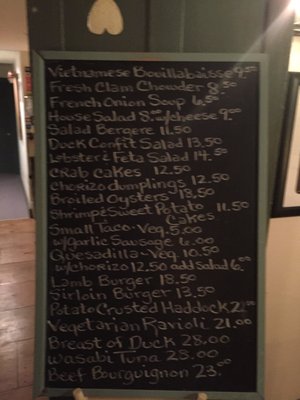 Vietnamese Bouillabaisse 9.50
Fresh Clam Chowder 8.50
French Onion Soup 6.50
House Salad 8. w/cheese 9.00
Salad Bergere 11.50
Duck Confit Salad 13.50
Lobster & Feta Salad 14.50
Crab Cakes 12.50
Chorizo Dumplings 12.50
Broiled Oysters 13.50
Shrimp & Sweet Potato Cakes 11.50
Small Taco - Veg. 5.00
w/garlic Sausage 6.00
Quesadilla - Veg. 10.50
w/chorizo 12.50 add salad 6.00
Lamb Burger 18.50
Sirloin Burger 13.50
Potato Crusted Haddock
Vegetarian Ravioli 21.00
Breast of Duck 28.00
Wasabi Tuna 28.00
Beef Bourguignon 23.00